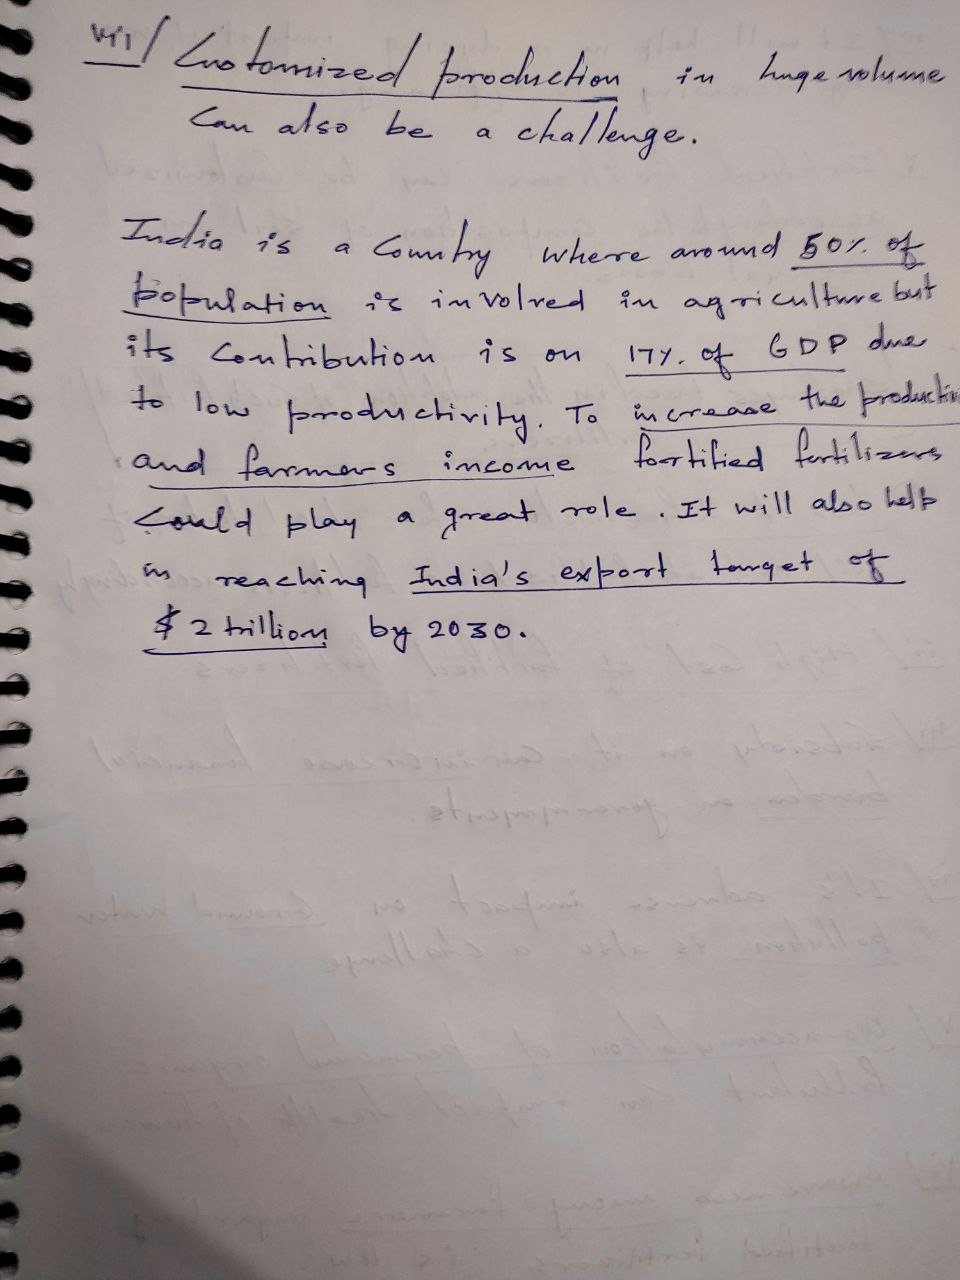 vii/ Customized production in huge volume
can also be a challenge.
India is a country where around 50% of
population is involved in agriculture but
its contribution is on 17% of GDP due
to low productivity. To increase the producti
and farmers income fortified fertilizers
could play a great role. It will also help
in reaching India's export target of
$ 2 trillion by 2030.